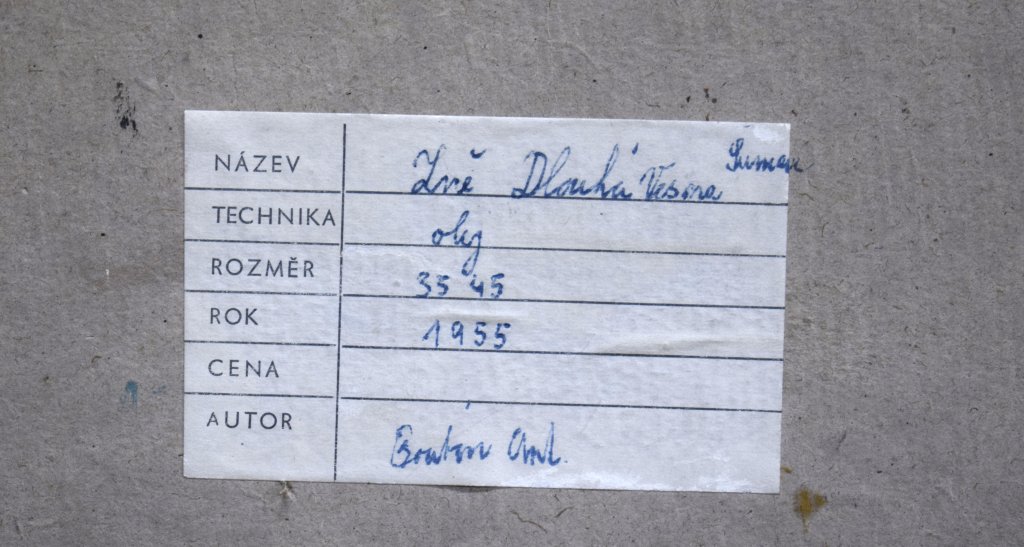 NÁZEV Žně Dlouhá Vesna Šumava
TECHNIKA olej
ROZMĚR 35 45
ROK 1955
CENA
AUTOR Ant.